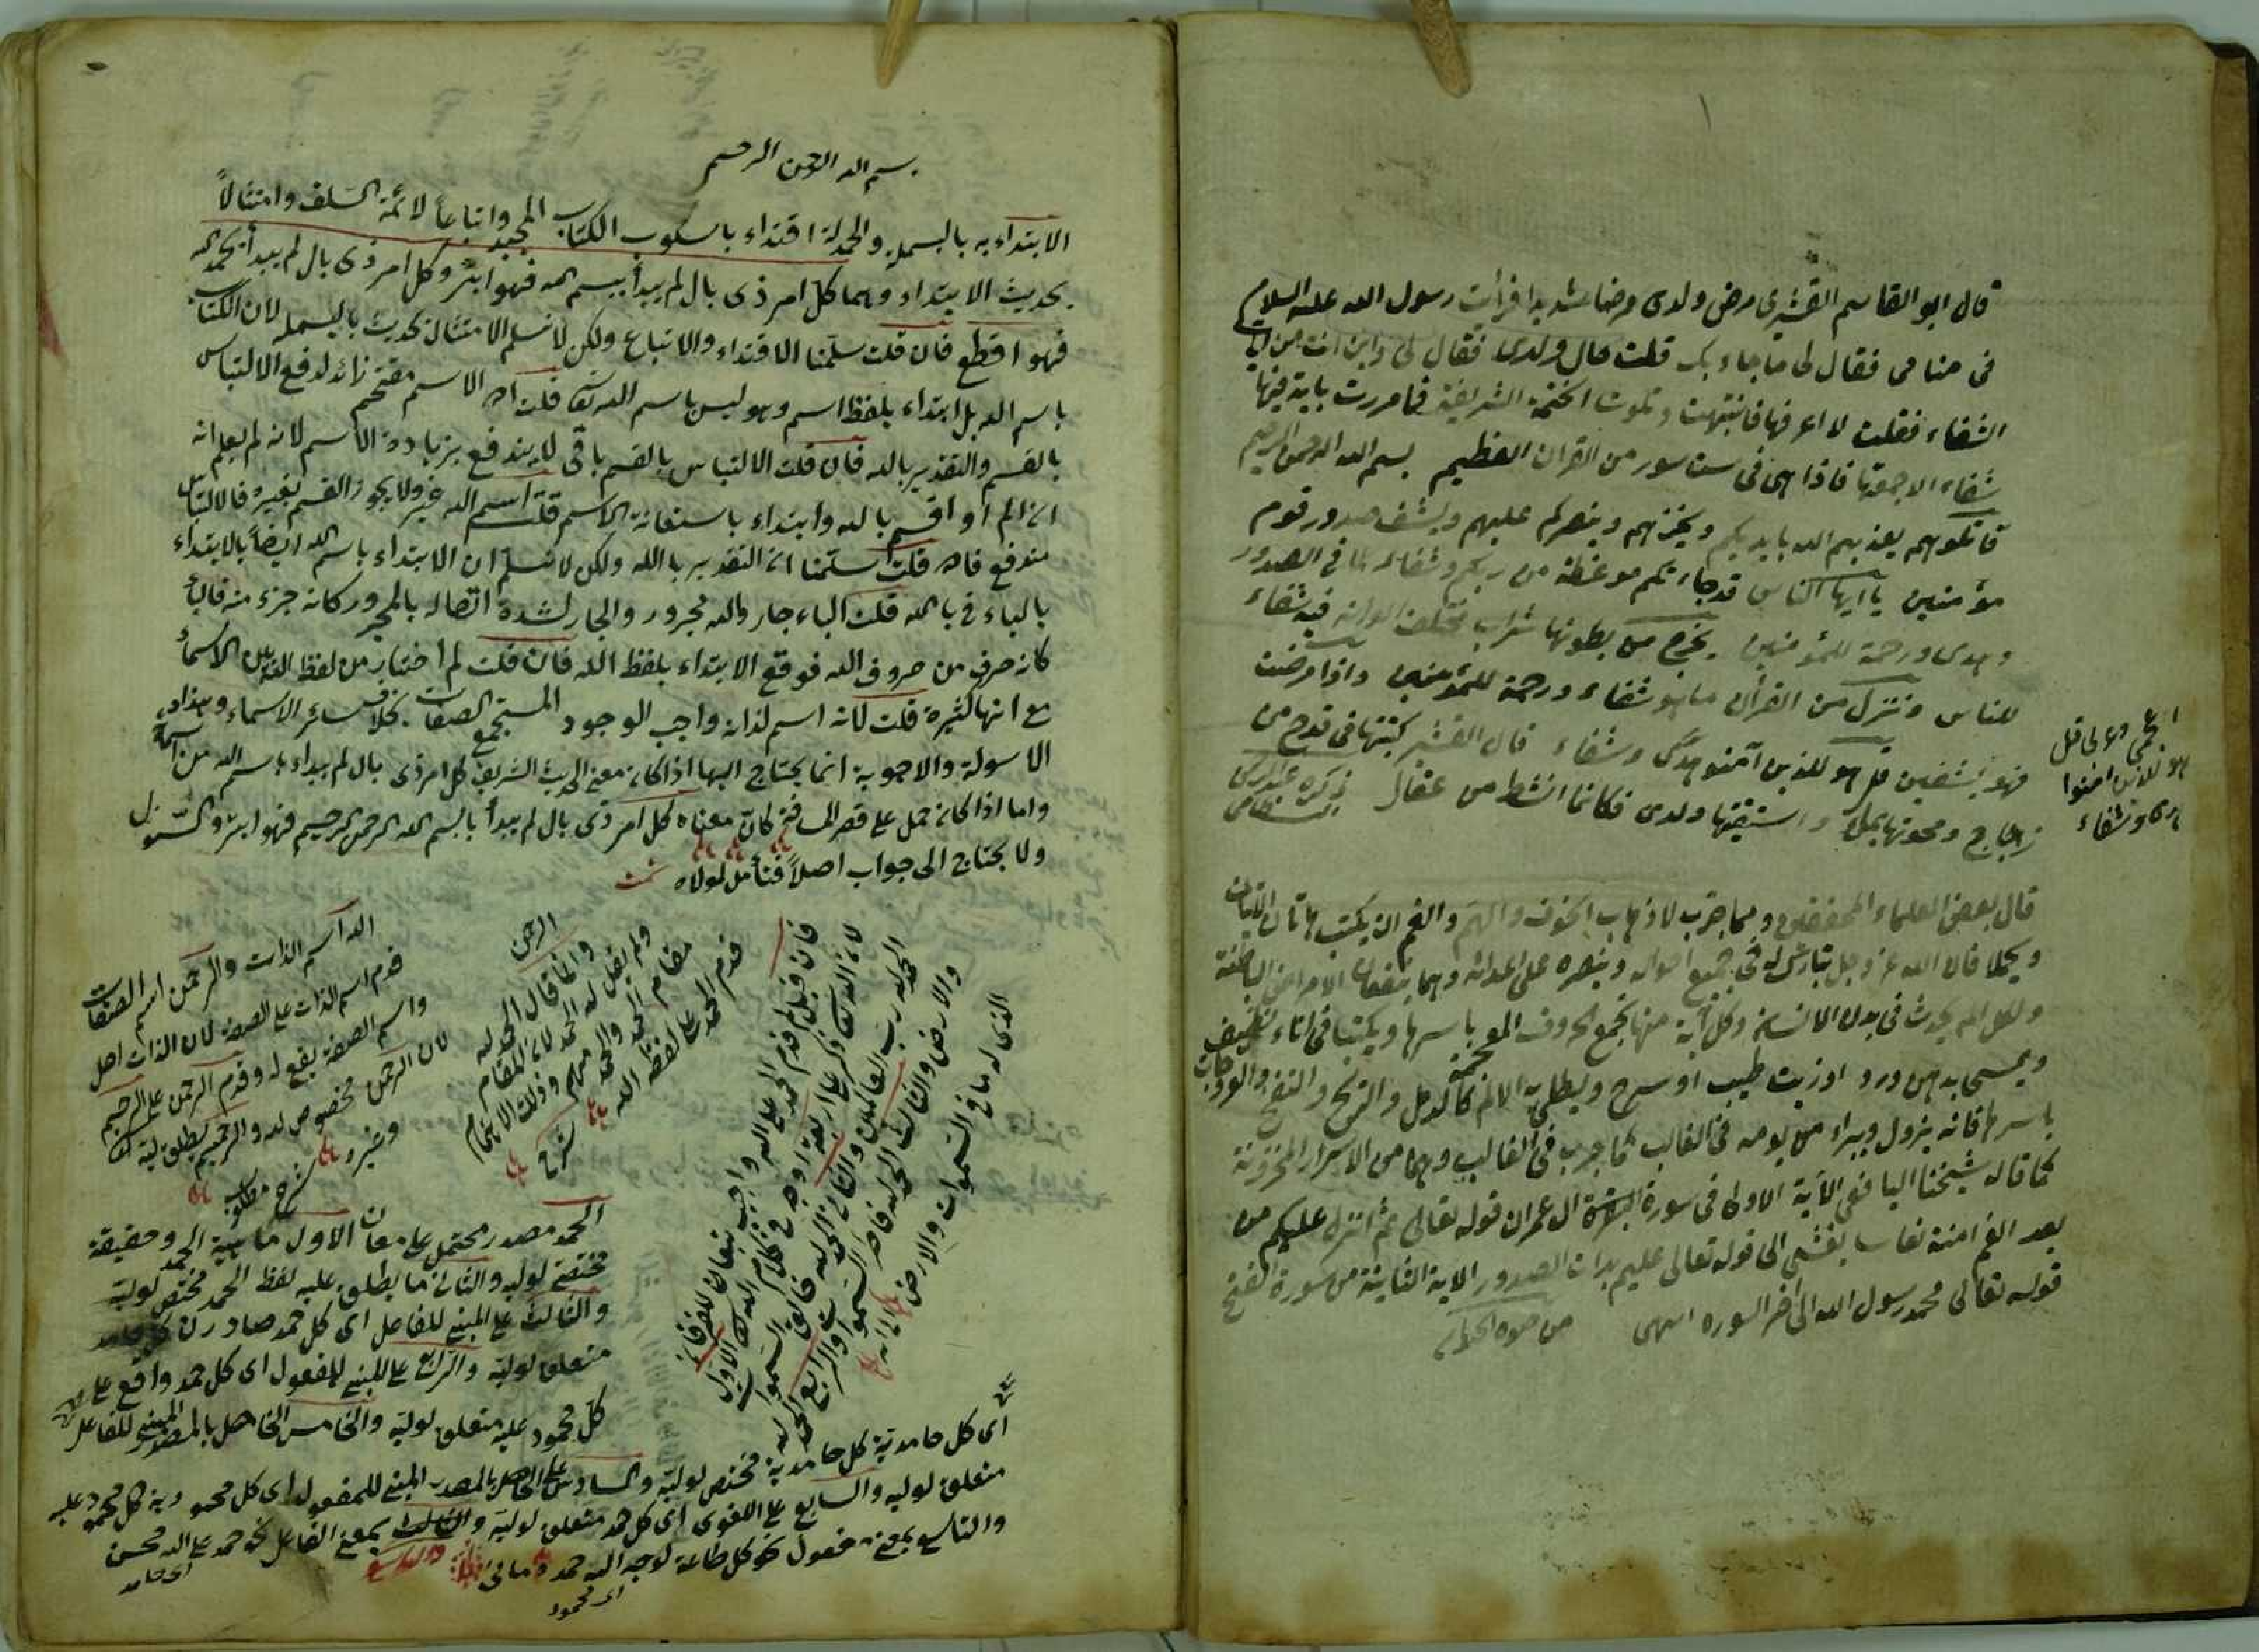 قال ابو القاسم القشيرى مرض ولدى مرضا شديدا فرأيت رسول الله عليه السلام
فى منامى فقال لى ما جاء بك قلت حال ولدى فقال لى واين انت من ايات
الشفاء فقلت لا اعرفها فانتبهت وتلوت الختمة الشريفة فما مررت باية فيها
شفاء الا جمعتها فاذا هى فى ست سور من القران العظيم بسم الله الرحمن الرحيم
قاتلوهم يعذبهم الله بايديكم ويخزهم وينصركم عليهم ويشف صدور قوم
مؤمنين يا ايها الناس قد جاءتكم موعظة من ربكم وشفاء لما فى الصدور
وهدى ورحمة للمؤمنين يخرج من بطونها شراب مختلف الوانه فيه شفاء
للناس وننزل من القرأن ما هو شفاء ورحمة للمؤمنين واذا مرضت
فهو يشفين قل هو للذين آمنوا هدى وشفاء قال القشيرى كتبتها فى قدح من
زجاج ومحوتها بماء واسقيتها ولدى فكانما انشط من عقال ذكره
اعجمى وعربى قل
هو للذين امنوا
هدى وشفاء
قال بعض العلماء المحققين ومما جرب لاذهاب الخوف والهم والغم ان يكتب هاتان الايتان
ويحملا فان الله عز وجل يبارك له فى جميع احواله وينصره على اعدائه وهما ينفعان الامراض الباطنة
ولكل الم يحدث فى بدن الانسان وكل آية منها تجمع الحروف المعجمة باسرها ويكتبا فى اناء نظيف
ويمحى بدهن ورد او زيت طيب او سيرج ويطلى به الالم كالدمل والريح والنفخ
باسرها فانه يزول ويبراء من يومه فى الغالب كما جرب فى الغالب وهما من الاسرار المخزونة
كما قاله شيخنا اليافعى الآية الاولى فى سورة ال عمران قوله تعالى ثم انزل عليكم من
بعد الغم امنة نعاسا يغشى الى قوله تعالى عليم بذات الصدور الاية الثانية من سورة الفتح
قوله تعالى محمد رسول الله الى اخر السورة انتهى من
بسم الله الرحمن الرحيم
الابتداء به بالبسملة والحمدلة اقتداء باسلوب الكتاب المجيد واتباعا لائمة السلف وامتثالاً
بحديث الابتداء وهما كل امر ذى بال لم يبدأ ببسم الله فهو ابتر وكل امر ذى بال لم يبدأ بحمد الله
فهو اقطع فان قلت سلمنا الاقتداء والاتباع ولكن لا نسلم الامتثال بحديث بالبسملة لان الكتاب
باسم الله بل ابتداء بلفظ اسم وهو ليس باسم الله تعالى قلت ان الاسم مقحم زائد لدفع الالتباس
بالقسم والتقدير بالله فان قلت الالتباس بالقسم باقى لا يندفع بزيادة الاسم لانه لم يعلم انه
او اقسم بالله وابتداء باستعانة الاسم قلت اسم الله غيره ولا يجوز القسم بغيره فالالتباس
مندفع فان قلت سلمنا ان التقدير بالله ولكن لا نسلم ان الابتداء باسم الله ايضاً بالابتداء
بالباء فى بالله قلت الباء جار والله مجرور والجار لشدة اتصاله بالمجرور كانه جزء منه فالباء
كانه حرف من حروف الله فوقع الابتداء بلفظ الله فان قلت لم اختار من لفظ الله بين الاسماء
مع انها كثيرة قلت لانه اسم لذات واجب الوجود المستجمع الصفات بخلاف سائر الاسماء وهذا
الاسولة والاجوبة انما يحتاج اليها اذا كان معنى الحديث الشريف كل امر ذى بال لم يبداء باسم الله من
واما اذا كان حمل على قصر المسافة كان معناه كل امر ذى بال لم يبدأ بالبسم الله الرحمن الرحيم فهو ابتر
ولا يحتاج الى جواب اصلاً فتأمل لمولاه تمت
الله اسم الذات والرحمن اسم الصفات
قدم اسم الذات على الصفة لان الذات اصل
واسم الصفة يقع له وقدم الرحمن على الرحيم
لان الرحمن مخصوص له والرحيم يطلق له
وغيره شرح
الرحمن
وانما قال الحمد لله
ولم يقل له الحمد لان المقام
مقام الحمد
قدم الحمد على لفظة الله
شرح
فان قيل لم قدم الحمد على الله
لان الله تعالى ذكر على اربعة اوجه فى كلام الله الاول
الحمد لله رب العالمين والثانى الحمد لله خالق السموات
والارض والثالث الحمد لله فاطر السموات والرابع الحمد لله
الذى له ما فى السموات والارض
الحمد مصدر محتمل على معان الاول ماهية الحمد وحقيقة
مختصة لوليه والثانى ما يطلق عليه لفظ الحمد مختص لوليه
والثالث على المبنى للفاعل اى كل حمد صادر
متعلق لوليه والرابع على المبنى للمفعول اى كل حمد واقع على
كل محمود عليه متعلق لوليه والخامس الحاصل بالمصدر المبنى للفاعل
اى كل حامدية كل حامدية مختص لوليه والسادس على الحاصل بالمصدر المبنى للمفعول اى كل محمودية كل محمود عليه
متعلق لوليه والسابع على اللغوى اى كل حمد متعلق لوليه بمعنى الفاعل نحو حمد على الله محسن
والتاسع بمعنى مفعول نحو كل طاعة لوجه الله حمد
اى حامد
اى محمود